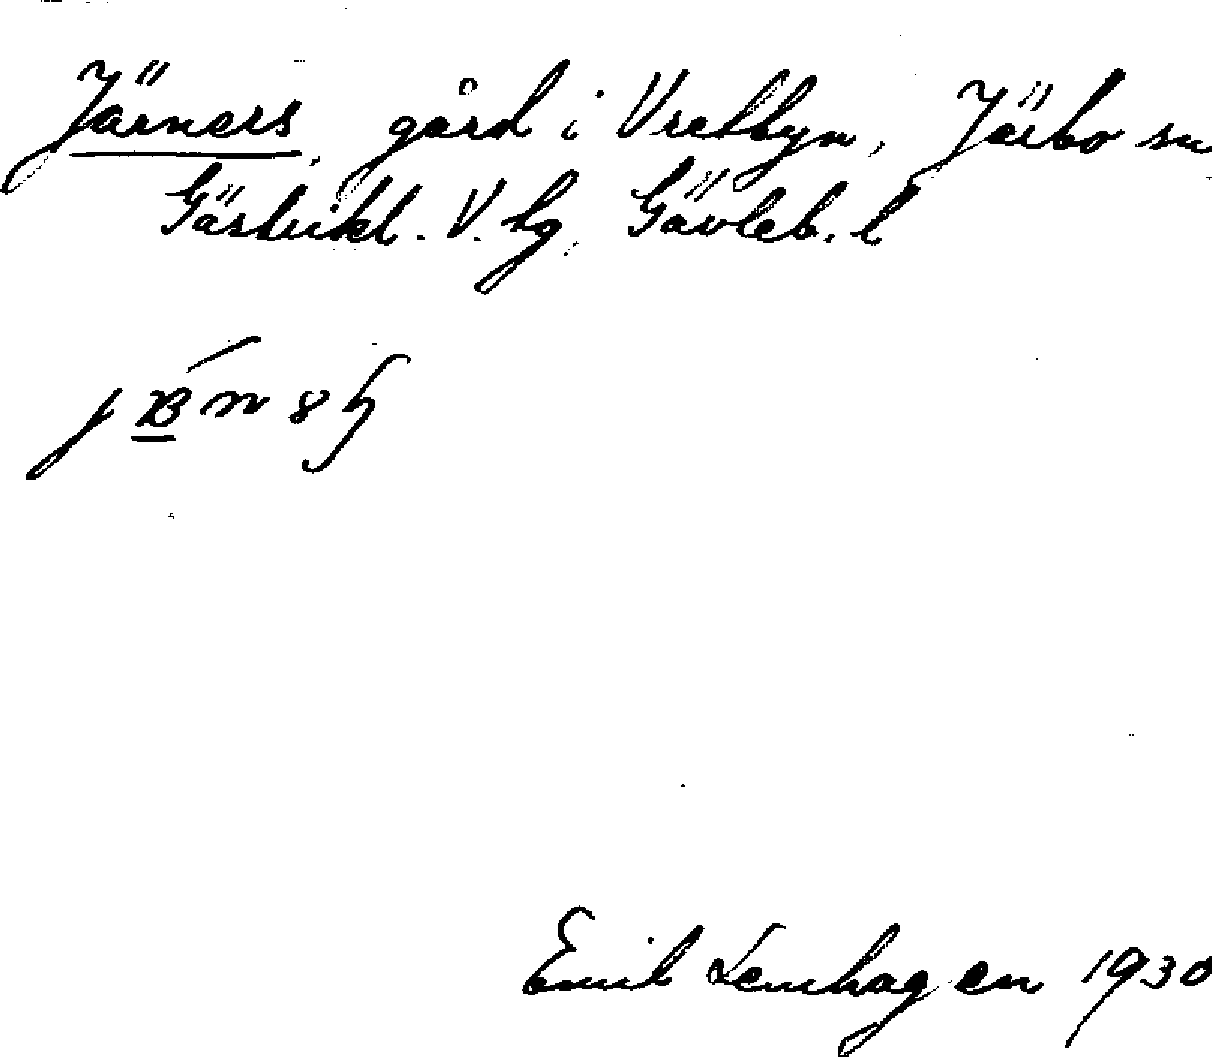 Järners, gård i Vretbyn, Järbo sn
Gästrikl. V. hg, Gävleb. l
Emil Lenhagen 1930